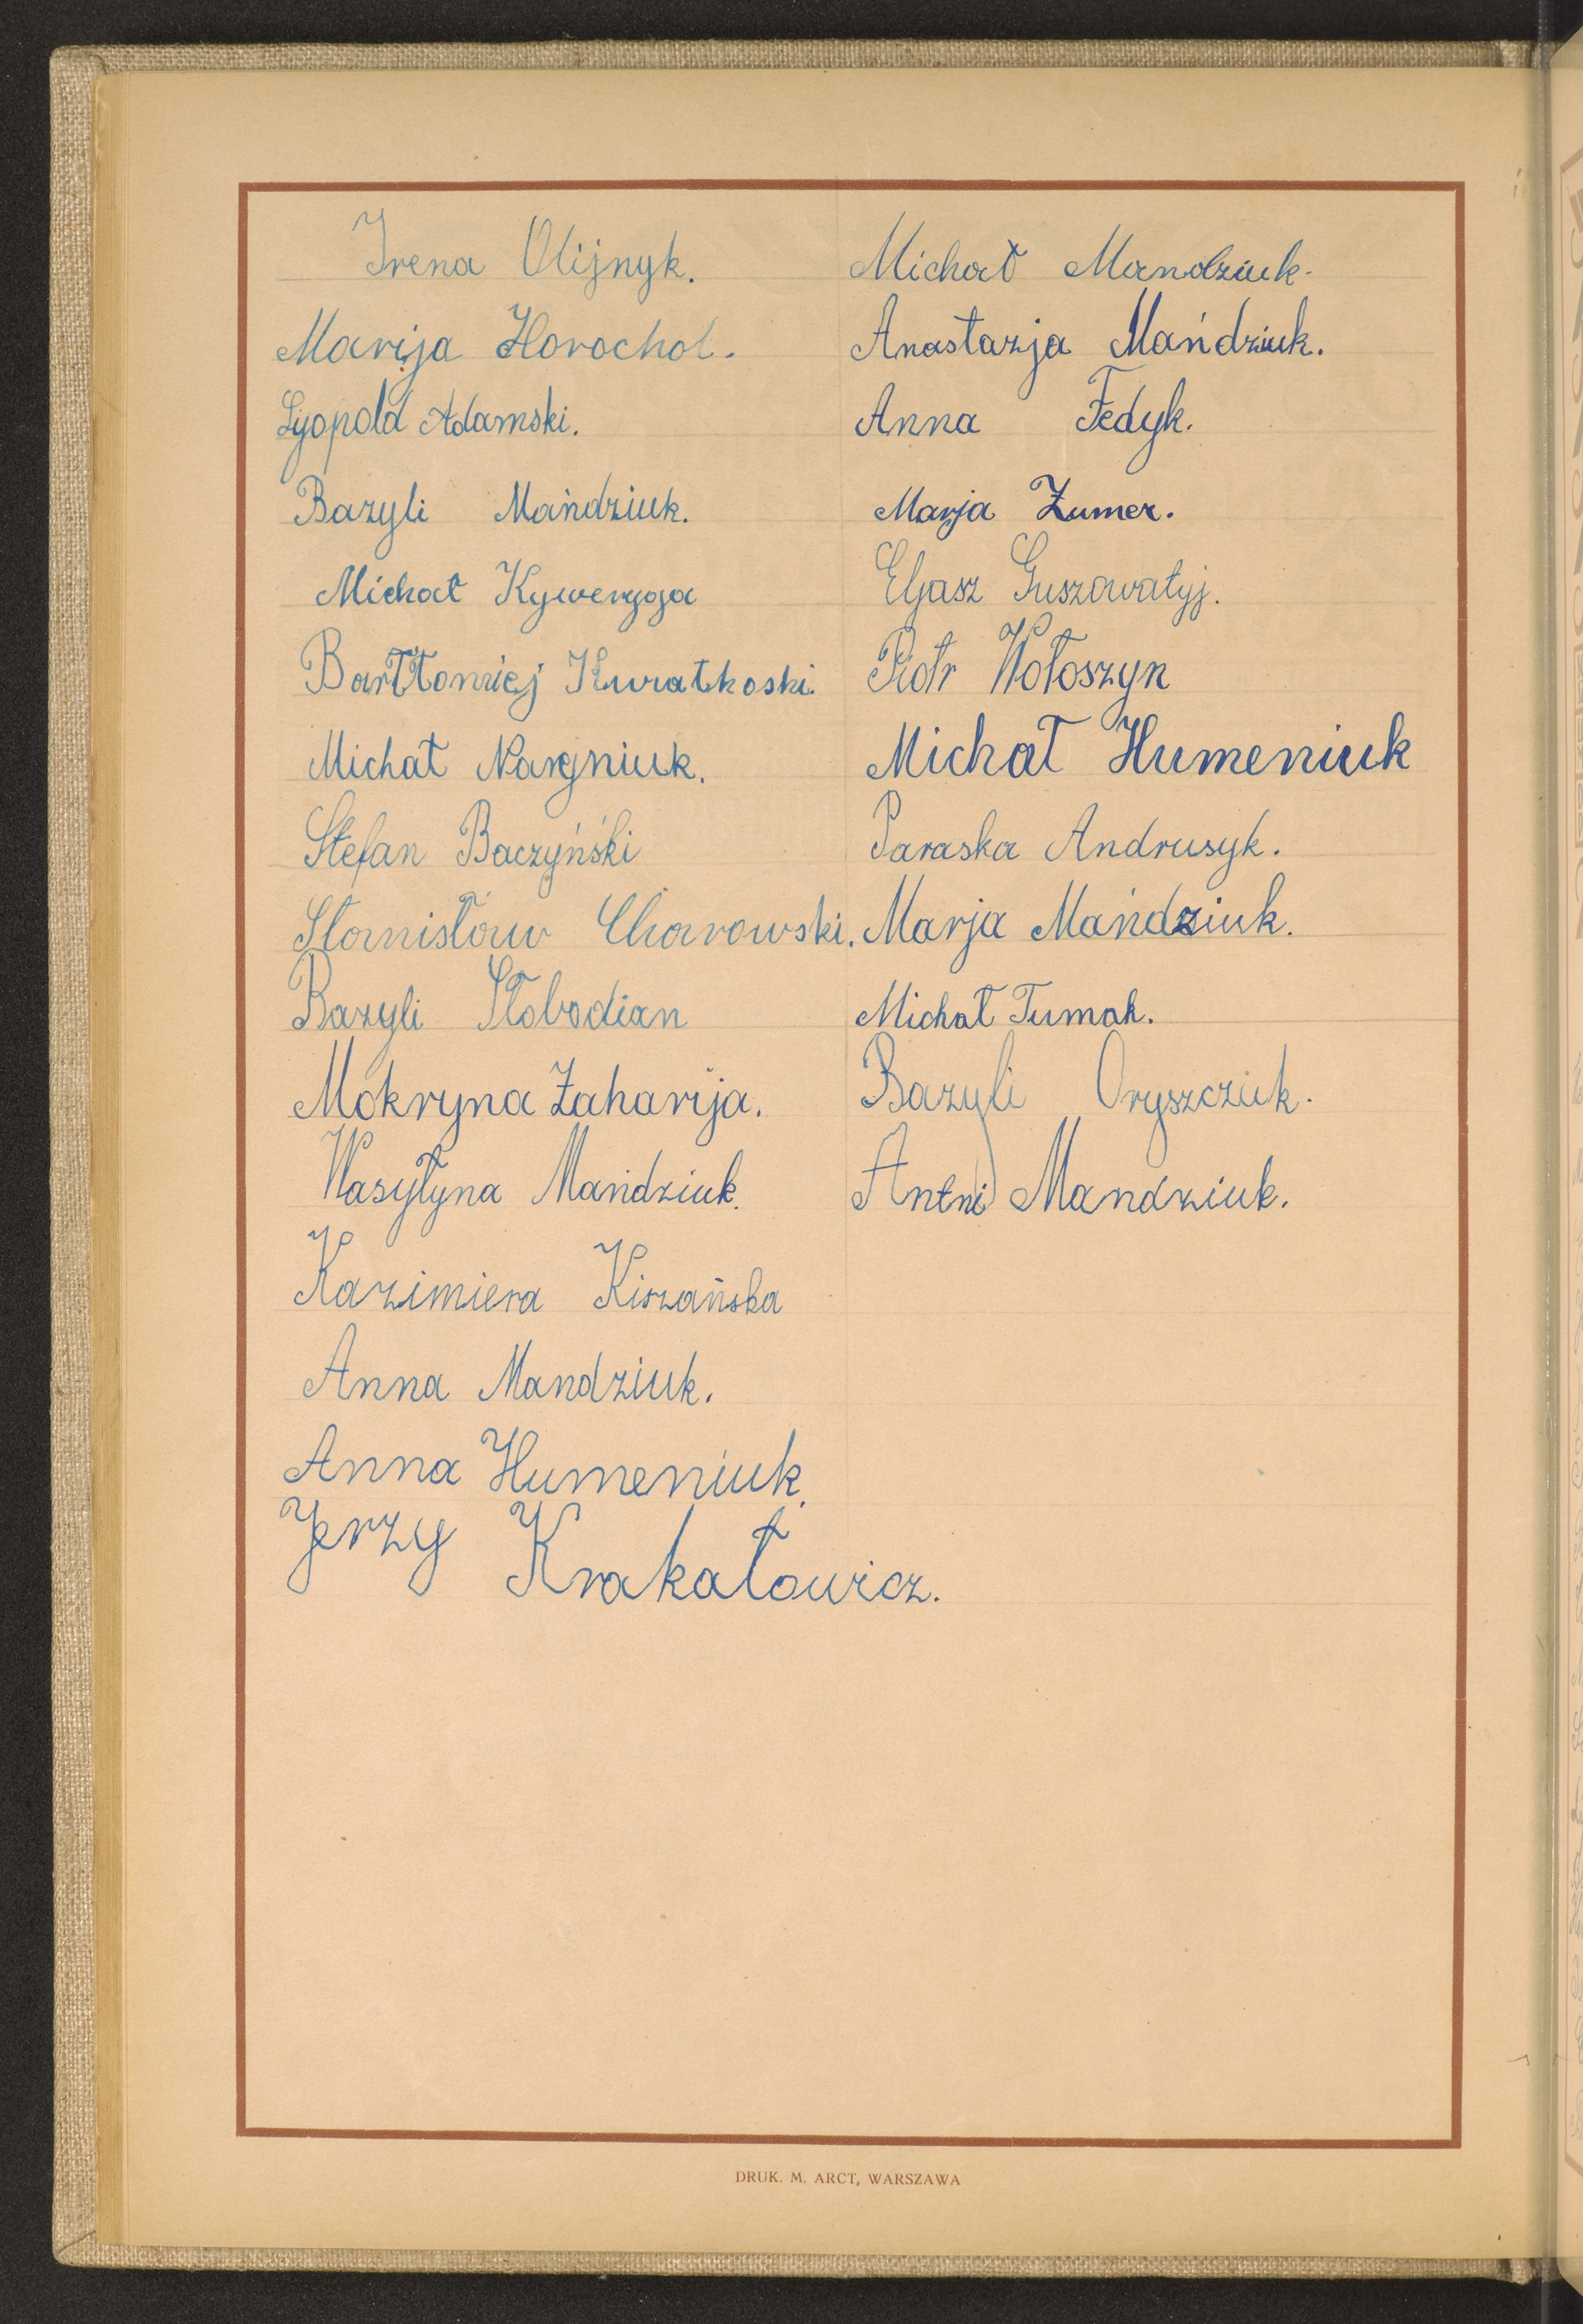 Irena Olijnyk.
Marija Horochol.
Lyopold Adamski.
Bazyli Mańdziuk.
Michał
Barłtomiej Kwiatkoski.
Michał Nargniuk.
Stefan Baczyński
Stanisław Charowski.
Bazyli Słobodian
Mokryna Zaharija.
Wasyłyna Mańdziuk.
Kazimiera Kiszańska
Anna Mandziuk.
Anna Humeniuk.
Jerzy Krakałowicz.
Michał Mandziuk.
Anastazja Mańdziuk.
Anna Fedyk.
Marja Zumer.
Eljasz Guszowatyj.
Piotr Wołoszyn
Michał Humeniuk
Paraska Andrusyk.
Marja Mańdziuk.
Michał Tumak.
Bazyli Oryszczuk.
Antni Mandziuk.
DRUK. M. ARCT, WARSZAWA